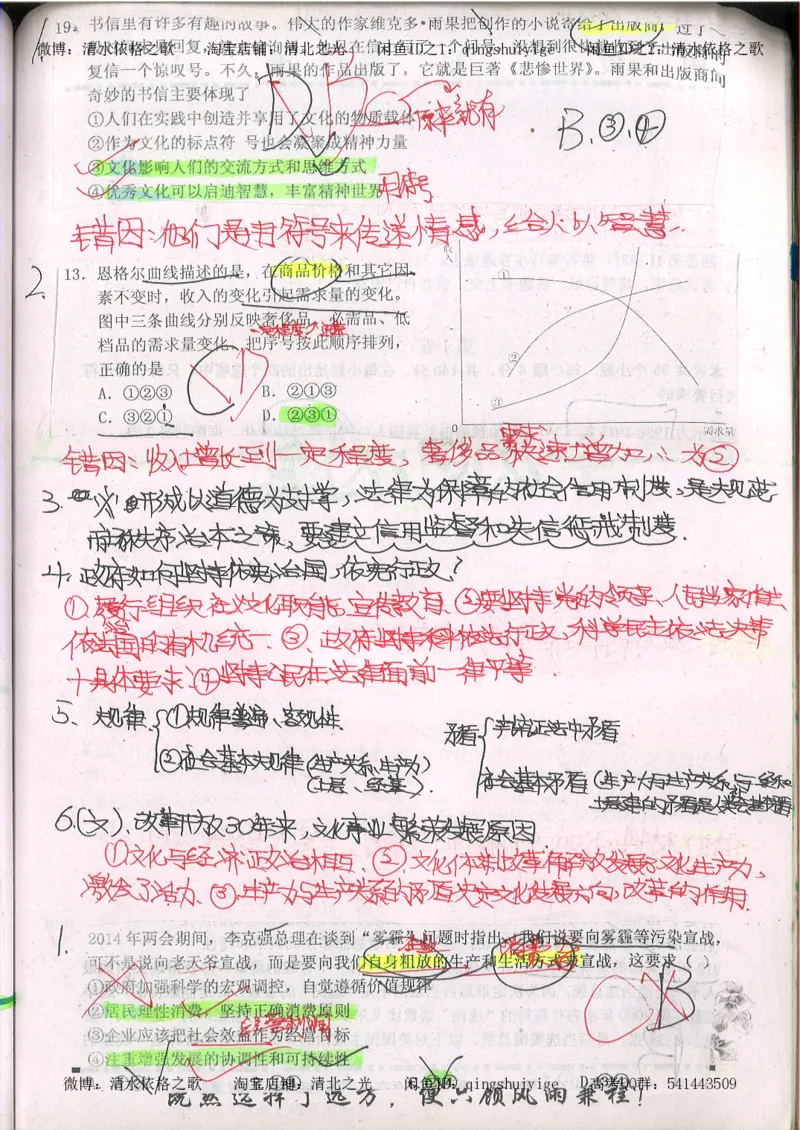 19. 书信里有许多有趣的故事。伟大的作家维克多·雨果把创作的小说寄给了出版商，过了
微博：清水依格之歌 淘宝店铺：清北之光 闲鱼ID1：qingshuiyige 闲鱼ID2：清水依格之歌
复信一个惊叹号。不久，雨果的作品出版了，它就是巨著《悲惨世界》。雨果和出版商间
奇妙的书信主要体现了
①人们在实践中创造并享用了文化的物质载体 原来就有
②作为文化的标点符号也会凝聚成精神力量
B.③.④
③文化影响人们的交流方式和思维方式
④优秀文化可以启迪智慧，丰富精神世界 用符号
错因：他们是用符号来传递情感，给人以智慧.
2. 13. 恩格尔曲线描述的是，在商品价格和其它因
素不变时，收入的变化引起需求量的变化。
图中三条曲线分别反映奢侈品、必需品、低
档品的需求量变化。把序号按此顺序排列，
正确的是
A. ①②③ B. ②①③
C. ③②① D. ②③①
收
①
②
③
0 需求量
错因：收入增长到一定程度，奢侈品快速增加∴为②
3. 必形成以道德为支撑，法律为保障的社会信用制度，是规范
市场秩序治本之策，要建立信用监督和失信惩戒制度.
4. 政府如何坚持依宪治国，依宪行政？
①履行组织社文化职能，宣传教育. ②要坚持党的领导、人民当家作主
依法治国的有机统一. ③、政府坚持科依法行政、科学民主依法决策
十具体要求. ④坚持公民在法律面前一律平等
5、大规律 ①规律普遍、客观性.
②社会基本大规律（生产关系、生产力）
（上层、经基）.
矛盾 辩证法中矛盾
社会基本矛盾（生产力与生产关系，与经济
6.(文). 改革开放30年来，文化事业繁荣发展原因
①文化与经济政治相互. ②文化体制改革解放发展了文化生产力，
激发了活力. ③生产力与生产关系的矛盾决定文化发展方向，改革的作用.
1. 2014年两会期间，李克强总理在谈到“雾霾”问题时指出，我们说要向雾霾等污染宣战，
可不是说向老天爷宣战，而是要向我们自身粗放的生产和生活方式来宣战，这要求（ ）
①政府加强科学的宏观调控，自觉遵循价值规律
②居民理性消费，坚持正确消费原则
③企业应该把社会效益作为经营目标
④注重增强发展的协调性和可持续性
B
微博：清水依格之歌 淘宝店铺：清北之光 闲鱼ID：qingshuiyige 高考QQ群：541443509
既然选择了远方，便只顾风雨兼程！